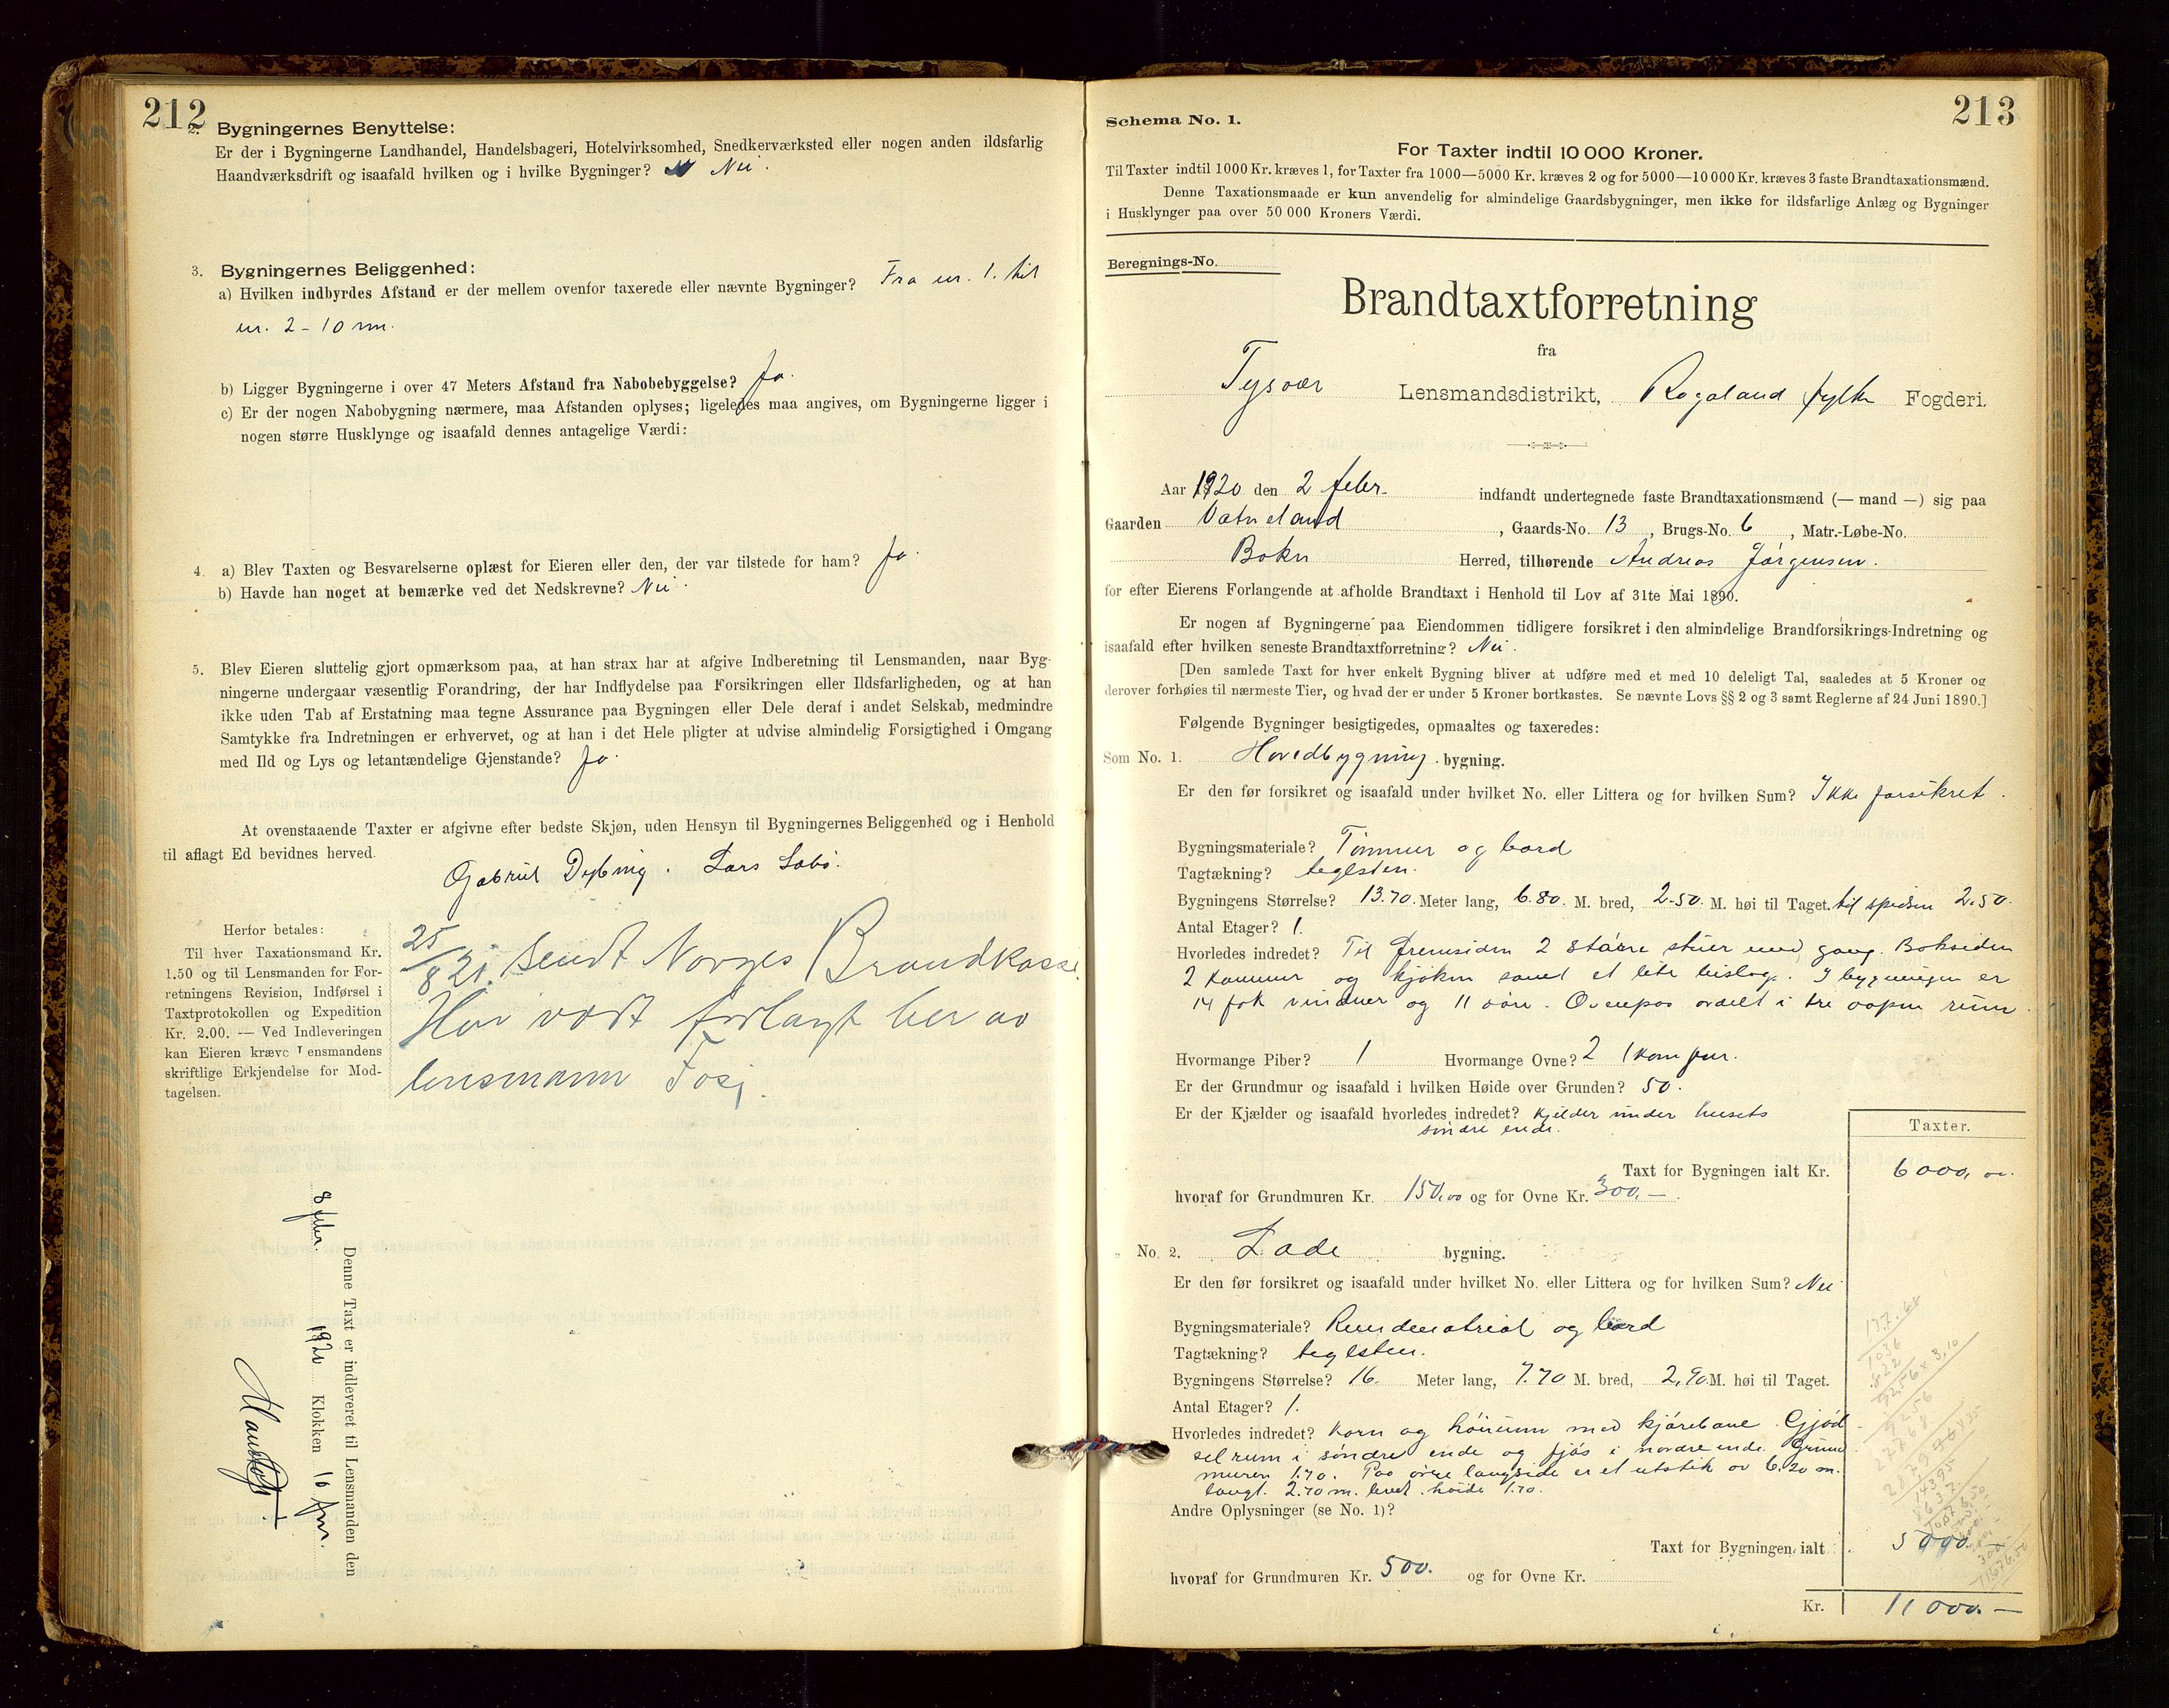 212
2. Bygningernes Benyttelse:
Er der i Bygningerne Landhandel, Handelsbageri, Hotelvirksomhed, Snedkerværksted eller nogen anden ildsfarlig
Haandværksdrift og isaafald hvilken og i hvilke Bygninger? Nei.
3. Bygningernes Beliggenhed:
a) Hvilken indbyrdes Afstand er der mellem ovenfor taxerede eller nævnte Bygninger? Fra nr. 1. til
nr. 2 - 10 m.
b) Ligger Bygningerne i over 47 Meters Afstand fra Nabobebyggelse? Ja.
c) Er der nogen Nabobygning nærmere, maa Afstanden oplyses; ligeledes maa angives, om Bygningerne ligger i
nogen større Husklynge og isaafald dennes antagelige Værdi:
4. a) Blev Taxten og Besvarelserne oplæst for Eieren eller den, der var tilstede for ham? Ja.
b) Havde han noget at bemærke ved det Nedskrevne? Nei.
5. Blev Eieren sluttelig gjort opmærksom paa, at han strax har at afgive Indberetning til Lensmanden, naar Byg-
ningerne undergaar væsentlig Forandring, der har Indflydelse paa Forsikringen eller Ildsfarligheden, og at han
ikke uden Tab af Erstatning maa tegne Assurance paa Bygningen eller Dele deraf i andet Selskab, medmindre
Samtykke fra Indretningen er erhvervet, og at han i det Hele pligter at udvise almindelig Forsigtighed i Omgang
med Ild og Lys og letantændelige Gjenstande? Ja.
At ovenstaaende Taxter er afgivne efter bedste Skjøn, uden Hensyn til Bygningernes Beliggenhed og i Henhold
til aflagt Ed bevidnes herved.
Gabriel Dybing. Lars Sabø.
Herfor betales:
Til hver Taxationsmand Kr.
1.50 og til Lensmanden for For-
retningens Revision, Indførsel i
Taxtprotokollen og Expedition
Kr. 2.00. — Ved Indleveringen
kan Eieren kræve Lensmandens
skriftlige Erkjendelse for Mod-
tagelsen.
25/8 21. Sendt Norges Brandkasse
Har vært forlangt her av
lensmann
Denne Taxt er indleveret til Lensmanden den
8 febr. 1920 Klokken 10 fm.
213
Schema No. 1.
For Taxter indtil 10 000 Kroner.
Til Taxter indtil 1000 Kr. kræves 1, for Taxter fra 1000—5000 Kr. kræves 2 og for 5000—10 000 Kr. kræves 3 faste Brandtaxationsmænd.
Denne Taxationsmaade er kun anvendelig for almindelige Gaardsbygninger, men ikke for ildsfarlige Anlæg og Bygninger
i Husklynger paa over 50 000 Kroners Værdi.
Beregnings-No.
Brandtaxtforretning
fra
Tysvær Lensmandsdistrikt, Rogaland fylke Fogderi.
Aar 1920 den 2 febr. indfandt undertegnede faste Brandtaxationsmænd (— mand —) sig paa
Gaarden Vatneland, Gaards-No. 13, Brugs-No. 6, Matr.-Løbe-No.
Bokn Herred, tilhørende Andreas Jørgensen.
for efter Eierens Forlangende at afholde Brandtaxt i Henhold til Lov af 31te Mai 1890.
Er nogen af Bygningerne paa Eiendommen tidligere forsikret i den almindelige Brandforsikrings-Indretning og
isaafald efter hvilken seneste Brandtaxtforretning? Nei.
[Den samlede Taxt for hver enkelt Bygning bliver at udføre med et med 10 deleligt Tal, saaledes at 5 Kroner og
derover forhøies til nærmeste Tier, og hvad der er under 5 Kroner bortkastes. Se nævnte Lovs §§ 2 og 3 samt Reglerne af 24 Juni 1890.]
Følgende Bygninger besigtigedes, opmaaltes og taxeredes:
Som No. 1. Hovedbygning. bygning.
Er den før forsikret og isaafald under hvilket No. eller Littera og for hvilken Sum? Ikke forsikret.
Bygningsmateriale? Tømmer og bord
Tagtækning? teglsten.
Bygningens Størrelse? 13.70. Meter lang, 6.80. M. bred, 2.50. M. høi til Taget. til spidsen 2.50.
Antal Etager? 1.
Hvorledes indredet? Til fremsiden 2 større stuer med gang. Baksiden
2 kammer og kjøken samt et lete bislag. I bygningen er
14 fak vinduer og 11 døre. Ovenpaa avdelt i tre aapne rum.
Hvormange Piber? 1 Hvormange Ovne? 2 1 komfur.
Er der Grundmur og isaafald i hvilken Høide over Grunden? 50.
Er der Kjælder og isaafald hvorledes indredet? Kjelder under husets
søndre ende.
Taxter.
Taxt for Bygningen ialt Kr. 6000, oo.
hvoraf for Grundmuren Kr. 150.00 og for Ovne Kr. 300.—
No. 2. Lade bygning.
Er den før forsikret og isaafald under hvilket No. eller Littera og for hvilken Sum? Nei
Bygningsmateriale? og bord
Tagtækning? teglsten.
Bygningens Størrelse? 16. Meter lang, 7.70 M. bred, 2.90 M. høi til Taget.
Antal Etager? 1.
Hvorledes indredet? Korn og høirum med kjørebane. Gjød-
selrum i søndre ende og fjøs i nordre ende. Grund
muren 1.70. Paa øvre langside er et utstik av 6.20 m.
langt. 2.70 m. bredt. høide 1.70.
Andre Oplysninger (se No. 1)?
Taxt for Bygningen ialt 5000.
hvoraf for Grundmuren Kr. 500. og for Ovne Kr.
Kr. 11000.—